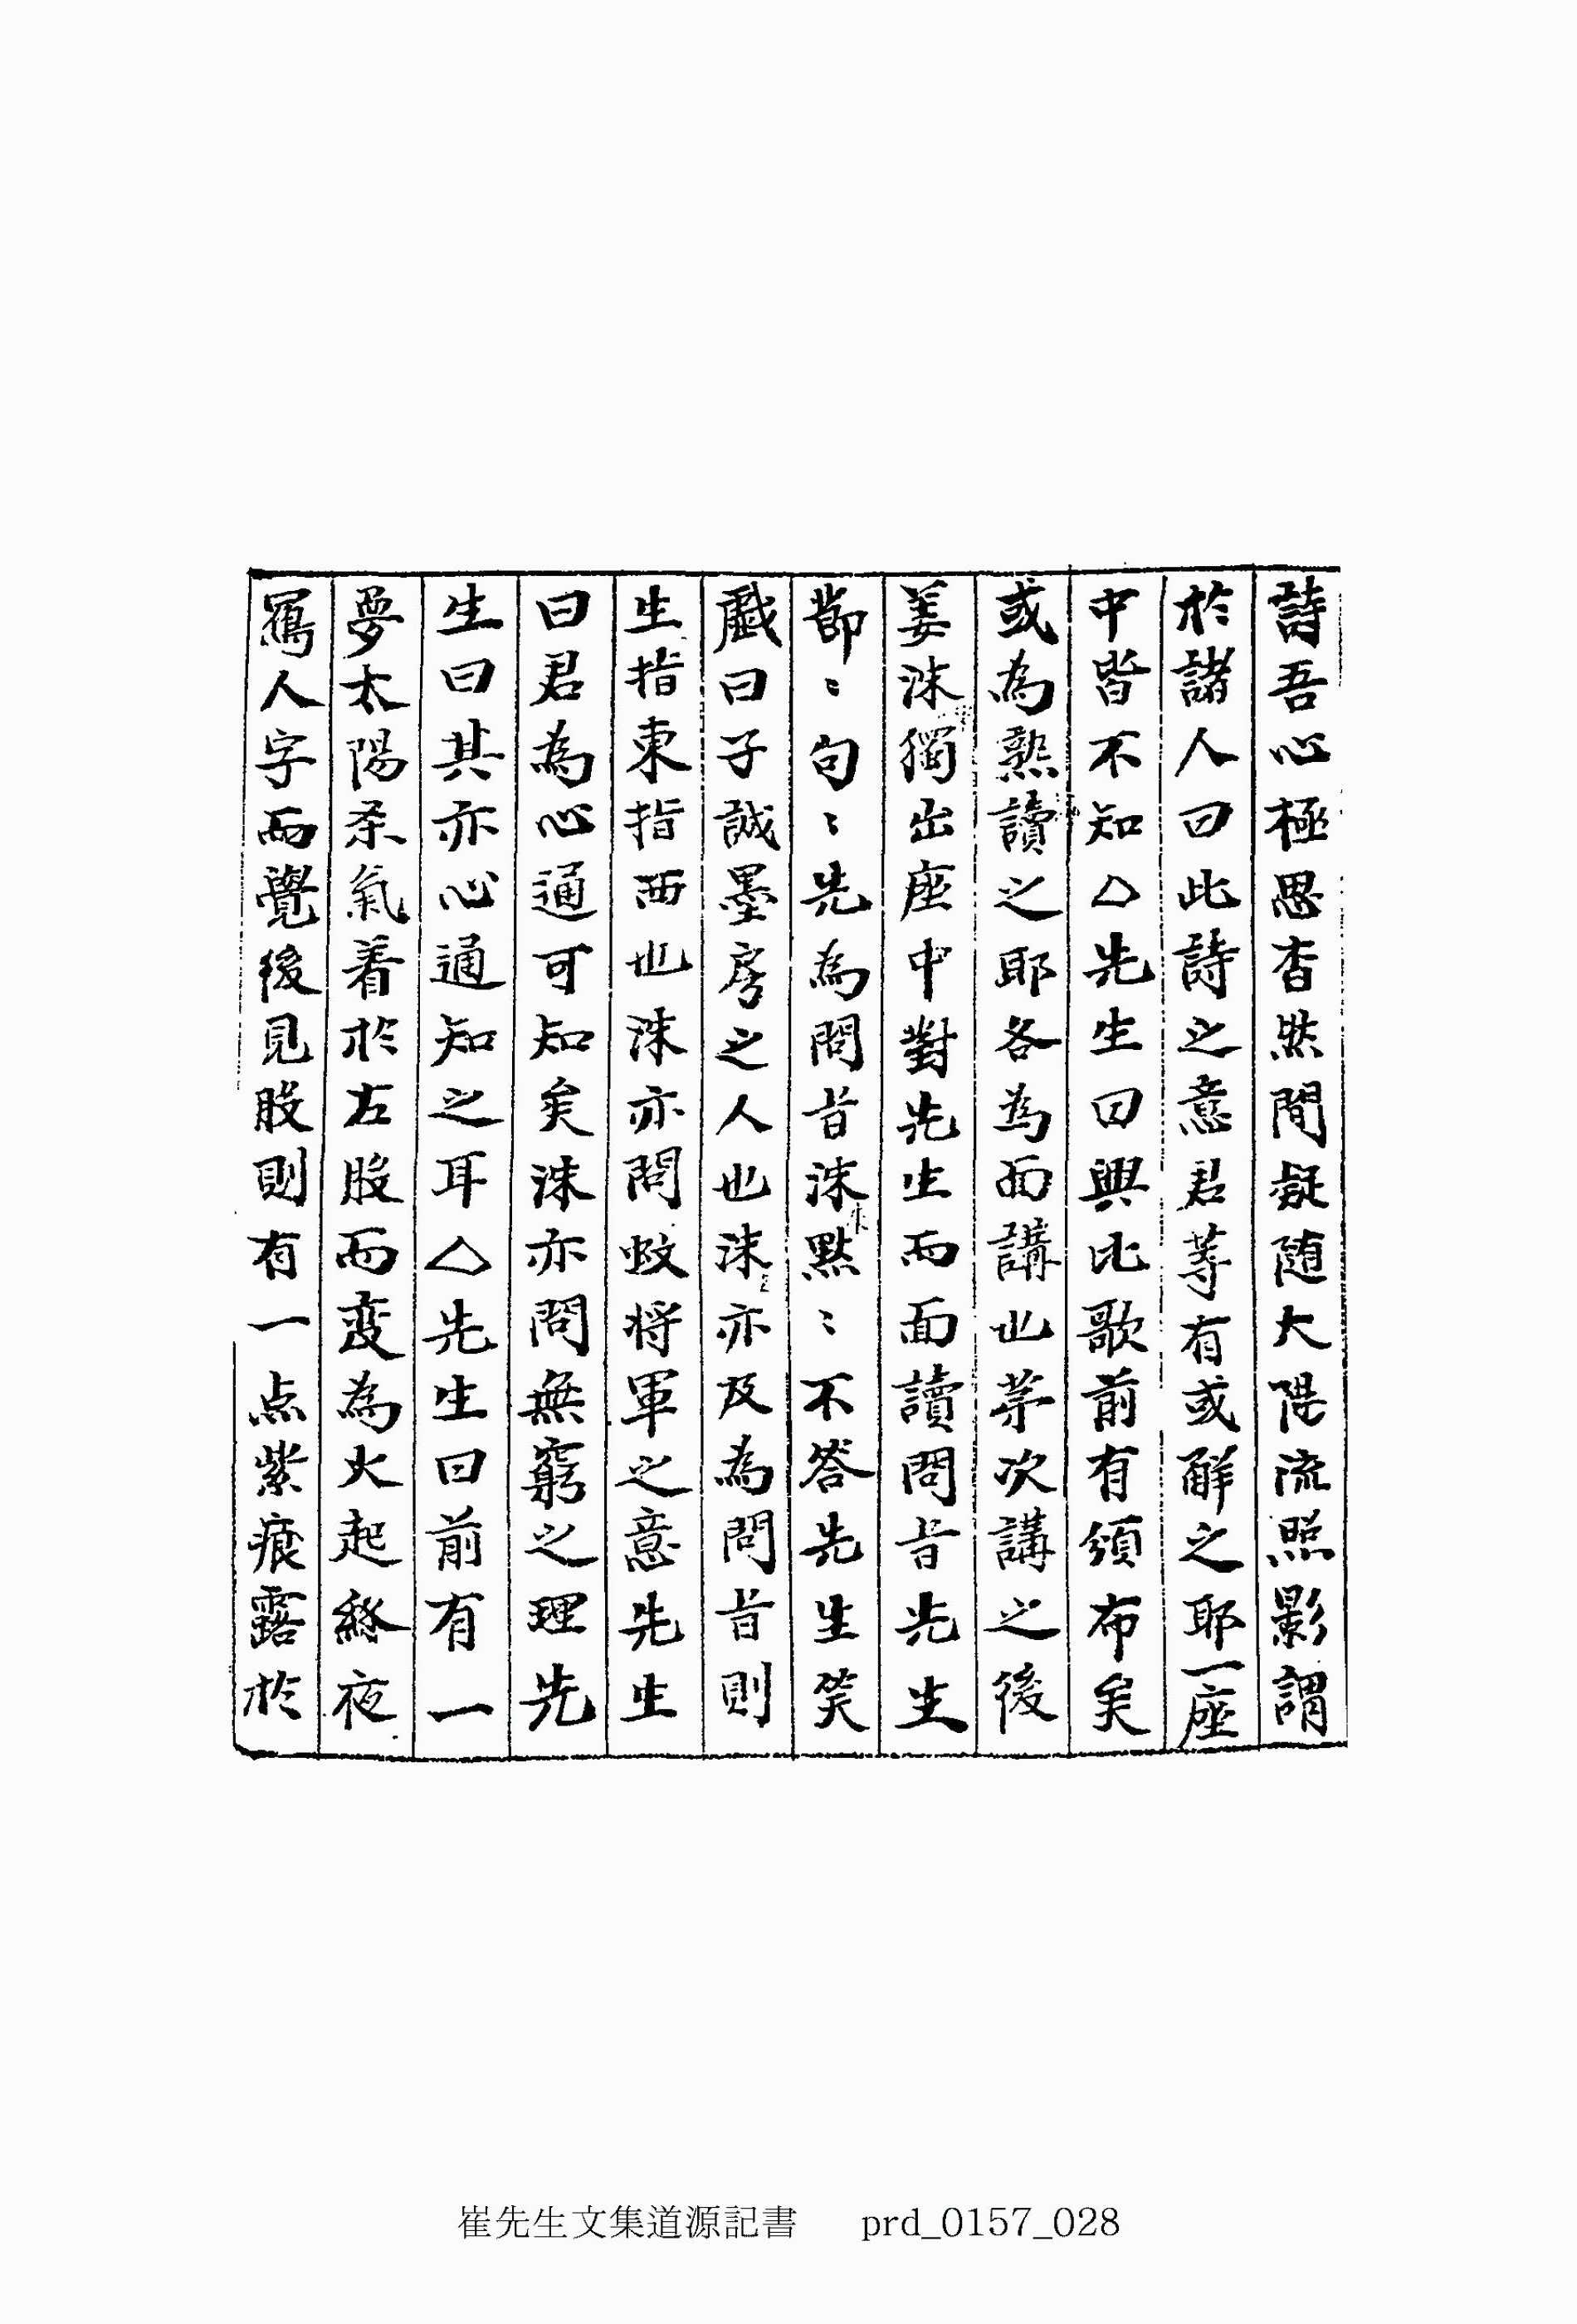 詩吾心極思杳然間疑随大陽流照影謂
於諸人曰此詩之意君等有或觧之耶一座
中皆不知△先生曰興比歌前有頒布矣
或為熟讀之耶各為面講也苐次講之後
姜洙獨出座中對先生而面讀問旨先生
節〻句〻先為問旨洙黙〻不答先生笑
戱曰子誠墨房之人也洙亦及為問旨則
生指東指西也洙亦問蚊将軍之意先生
曰君為心通可知矣洙亦問無窮之理先
生曰其亦心通知之耳△先生曰前有一
夢太陽杀氣着於左股而変為火起終夜
寫人字而覺後見股則有一点紫痕露於
崔先生文集道源記書 prd_0157_028